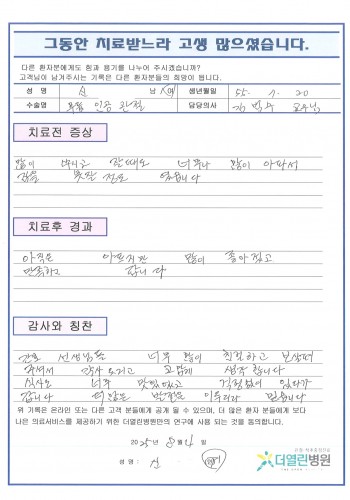 그동안 치료받느라 고생 많으셨습니다.
다른 환자분에게도 힘과 용기를 나누어 주시겠습니까?
고객님이 남겨주시는 기록은 다른 환자분들의 희망이 됩니다.
성 명 신 남 여 생년월일 55. 7. 20
수술명 무릎 인공관절 담당의사 교수님
치료전 증상
많이 부니고 잘때도 너무나 많이 아파서
잠을 못잘 정도 였읍니다
치료후 경과
아직은 아프지만 많이 좋아졌고
만족하고 갑니다
감사와 칭찬
간호 선생님들 너무 많이 친절하고 보살펴
주셔서 감사드리고 고맙게 생각합니다
식사도 너무 맛있었고 걱정없이 있다가
갑니다 더 많은 발전을 이루리라 믿습니다
위 기록은 온라인 또는 다른 고객 분들에게 공개 될 수 있으며, 더 많은 환자 분들에게 보다
나은 의료서비스를 제공하기 위한 더열린병원만의 연구에 사용 되는 것을 동의합니다.
2025년 8월 4일
성 명 : 신
더열린병원